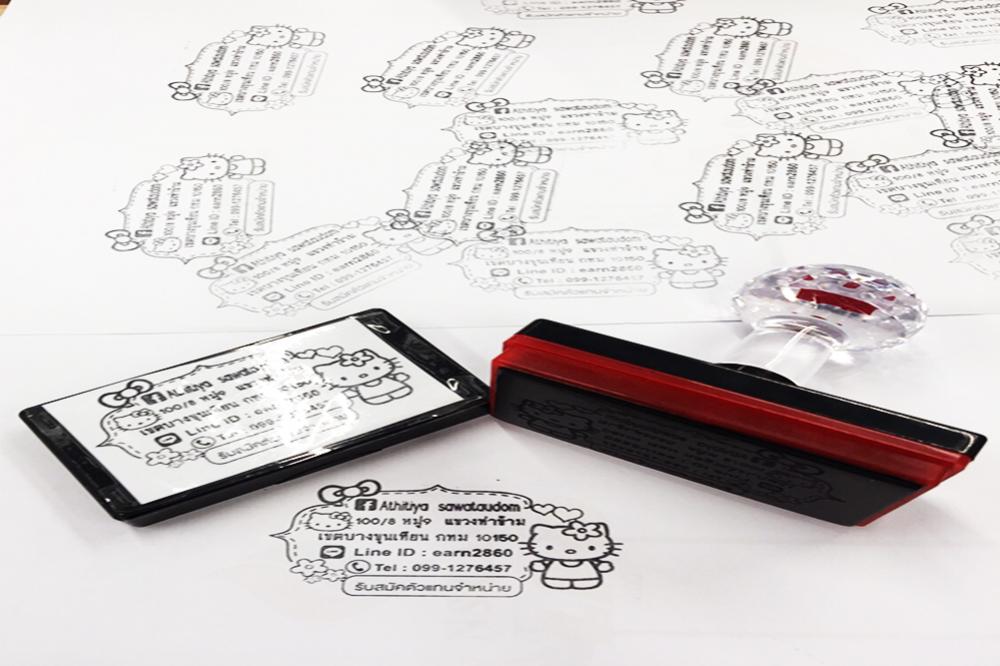 Athitiya sawataudom
100/8 หมู่9 แขวงท่าข้าม
เขตบางขุนเทียน กทม 10150
Line ID : earn2860
Tel : 099-1276457
รับสมัครตัวแทนจำหน่าย